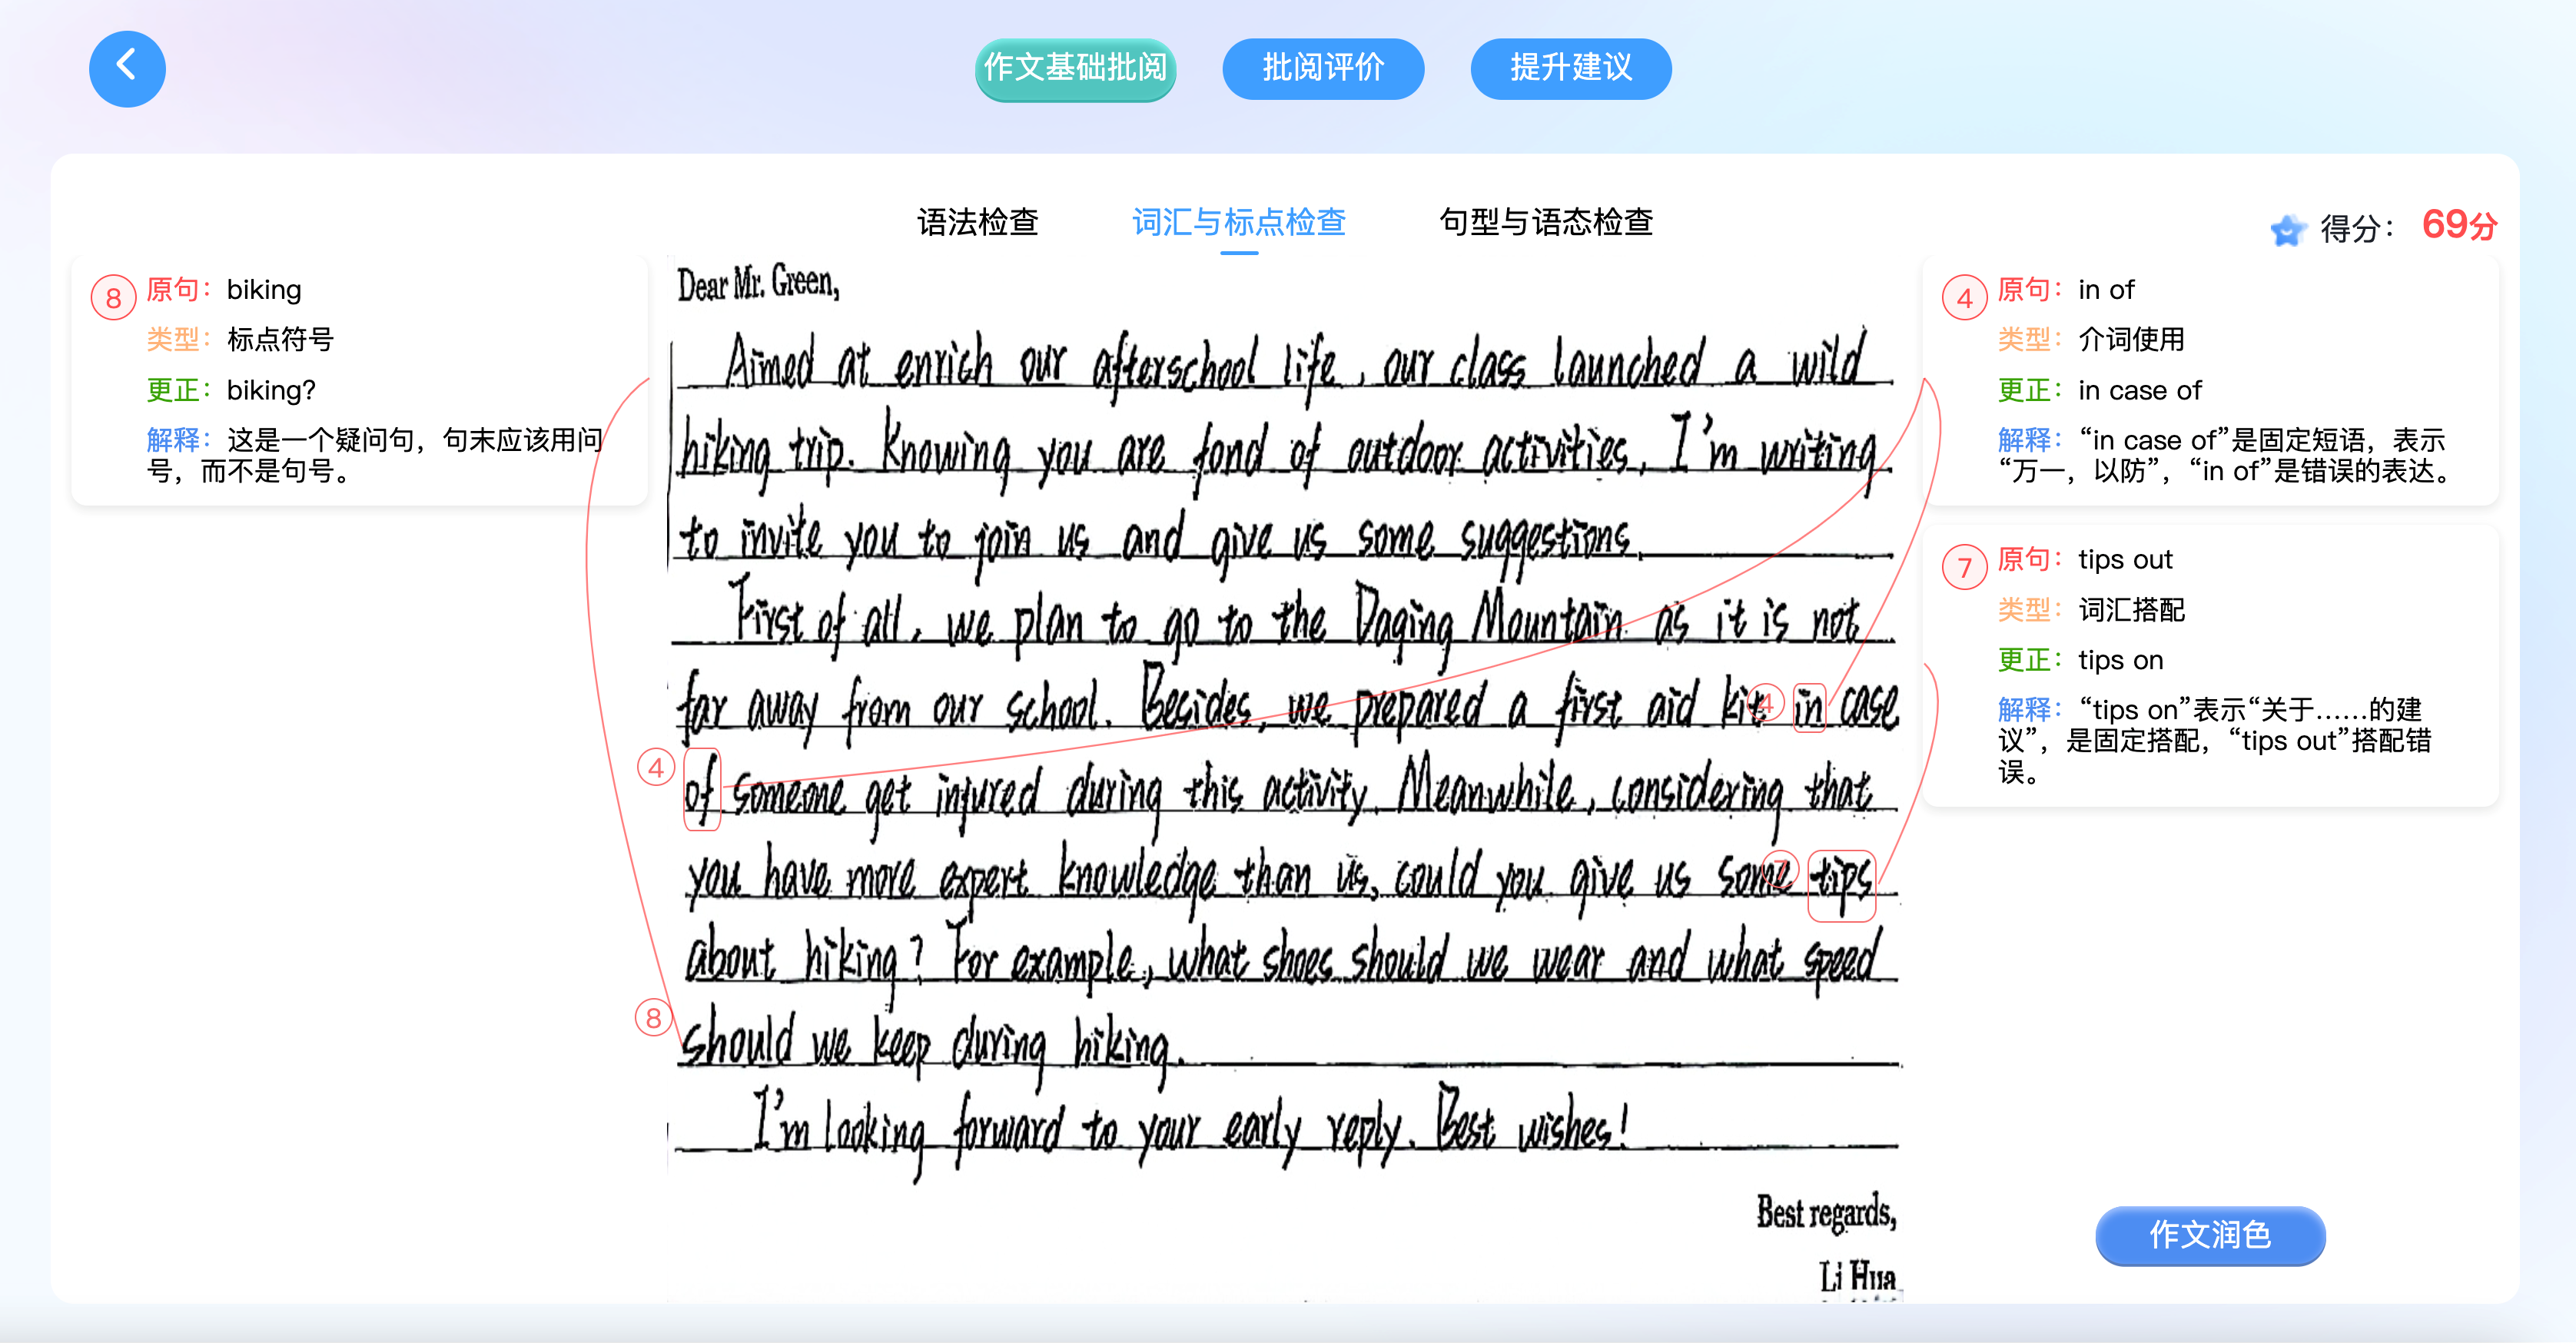 作文基础批阅
批阅评价
提升建议
语法检查
词汇与标点检查
句型与语态检查
得分：
69分
8
原句：biking
类型：标点符号
更正：biking?
解释：这是一个疑问句，句末应该用问
号，而不是句号。
Dear Mr. Green,
Aimed at enrich our afterschool life, our class launched a wild
hiking trip. Knowing you are fond of outdoor activities, I'm writing
to invite you to join us and give us some suggestions.
First of all, we plan to go to the Daqing Mountain as it is not
far away from our school. Besides, we prepared a first aid kit in case
of someone get injured during this activity. Meanwhile, considering that
you have more expert knowledge than us, could you give us some tips
about hiking? For example, what shoes should we wear and what speed
should we keep during hiking.
I'm looking forward to your early reply. Best wishes!
Best regards,
Li Hua
4
4
7
8
4
原句：in of
类型：介词使用
更正：in case of
解释：“in case of”是固定短语，表示
“万一，以防”，“in of”是错误的表达。
7
原句：tips out
类型：词汇搭配
更正：tips on
解释：“tips on”表示“关于……的建
议”，是固定搭配，“tips out”搭配错
误。
作文润色